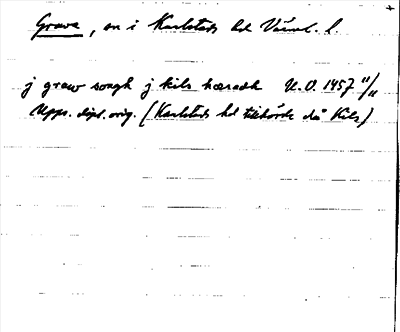 Grava, sn i Karlstads hd Värml. l.
j graw soogh j kils hæradh U.O. 1457 11/11
Upps. dipl. orig. (Karlstads hd tillhörde då Kils)